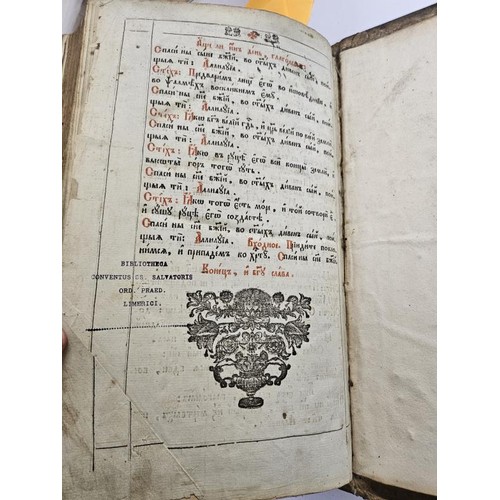 Спаси ны сн҃е бж҃їй, во ст҃ыхъ дивенъ сый, пою-
щыѧ ти: Аллилꙋїа.
Стїхъ: Предваримъ лице єгѡ во исповѣданїи, и
во ѱалмѣхъ воскликнемъ ємꙋ.
Спаси ны сн҃е бж҃їй, во ст҃ыхъ дивенъ сый, пою-
щыѧ ти: Аллилꙋїа.
Стїхъ: Ꙗкѡ бг҃ъ велїй гд҇ь, и цр҃ь велїй по всей земли.
Спаси ны сн҃е бж҃їй, во ст҃ыхъ дивенъ сый, пою-
щыѧ ти: Аллилꙋїа.
Стїхъ: Ꙗкѡ въ рꙋцѣ єгѡ вси концы земли, и
высѡты горъ тогѡ сꙋть.
Спаси ны сн҃е бж҃їй, во ст҃ыхъ дивенъ сый, пою-
щыѧ ти: Аллилꙋїа.
Стїхъ: Ꙗкѡ тогѡ єсть море, и той сотвори є,
и сꙋшꙋ рꙋцѣ єгѡ создастѣ.
Спаси ны сн҃е бж҃їй, во ст҃ыхъ дивенъ сый, пою-
щыѧ ти: Аллилꙋїа. Входное. Прїидите покло-
нимсѧ, и припадемъ ко хрт҇ꙋ. Спаси ны сн҃е бж҃їй.
Конецъ, и бг҃ꙋ слава.
BIBLIOTHECA
CONVENTUS SS. SALVATORIS
ORD. PRAED.
LIMERICI.